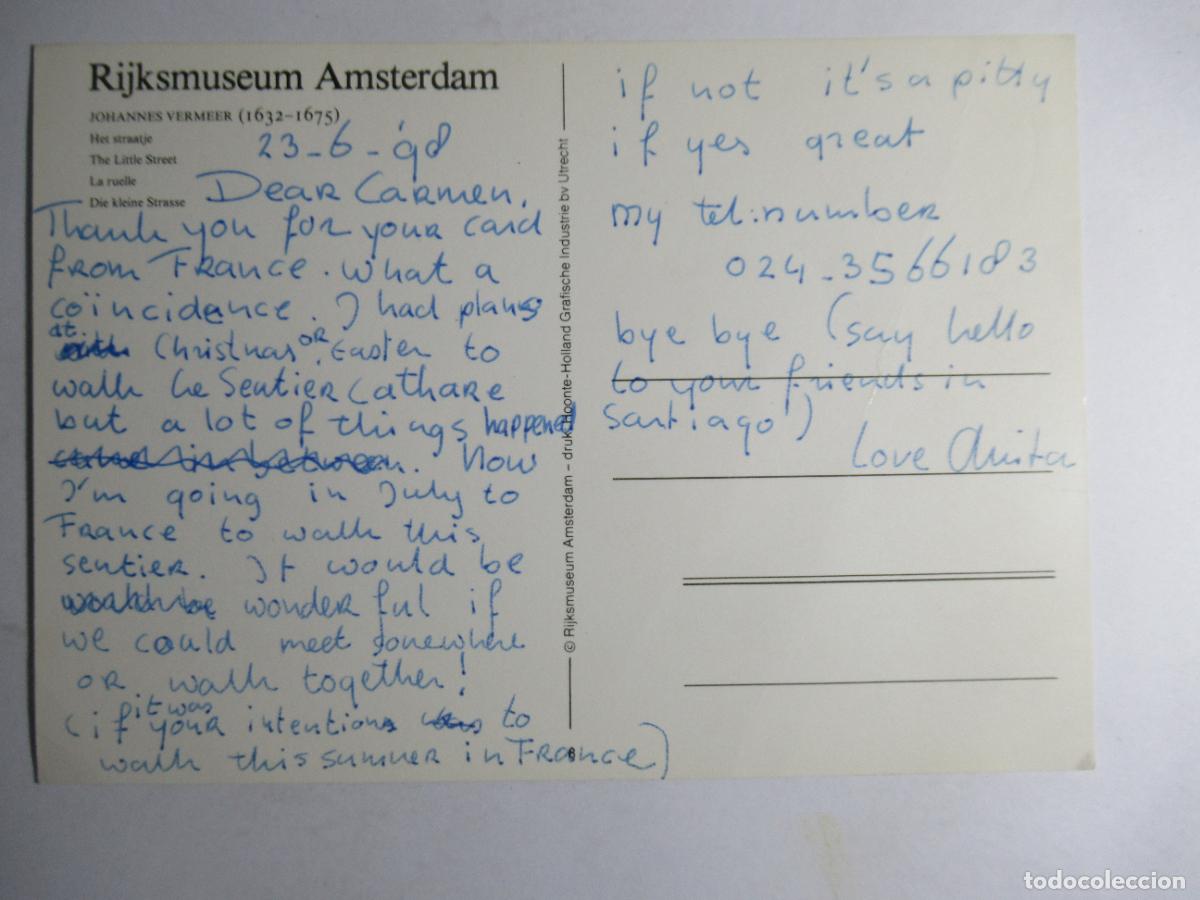 Rijksmuseum Amsterdam
JOHANNES VERMEER (1632-1675)
Het straatje
The Little Street
La ruelle
Die kleine Strasse
23-6-'98
Dear Carmen,
Thank you for your card
from France. What a
coïncidence. I had plans
at Christmas or Easter to
walk le Sentier Cathare
but a lot of things happened
in between. Now
I'm going in July to
France to walk this
sentier. It would be
wonderful if
we could meet somewhere
or walk together!
(if it was your intention to
walk this summer in France)
© Rijksmuseum Amsterdam – druk: Hoonte-Holland Grafische Industrie bv Utrecht
if not it's a pitty
if yes great
my tel: number
024-3566183
bye bye (say hello
to your friends in
Santiago)
Love Anita
todocoleccion